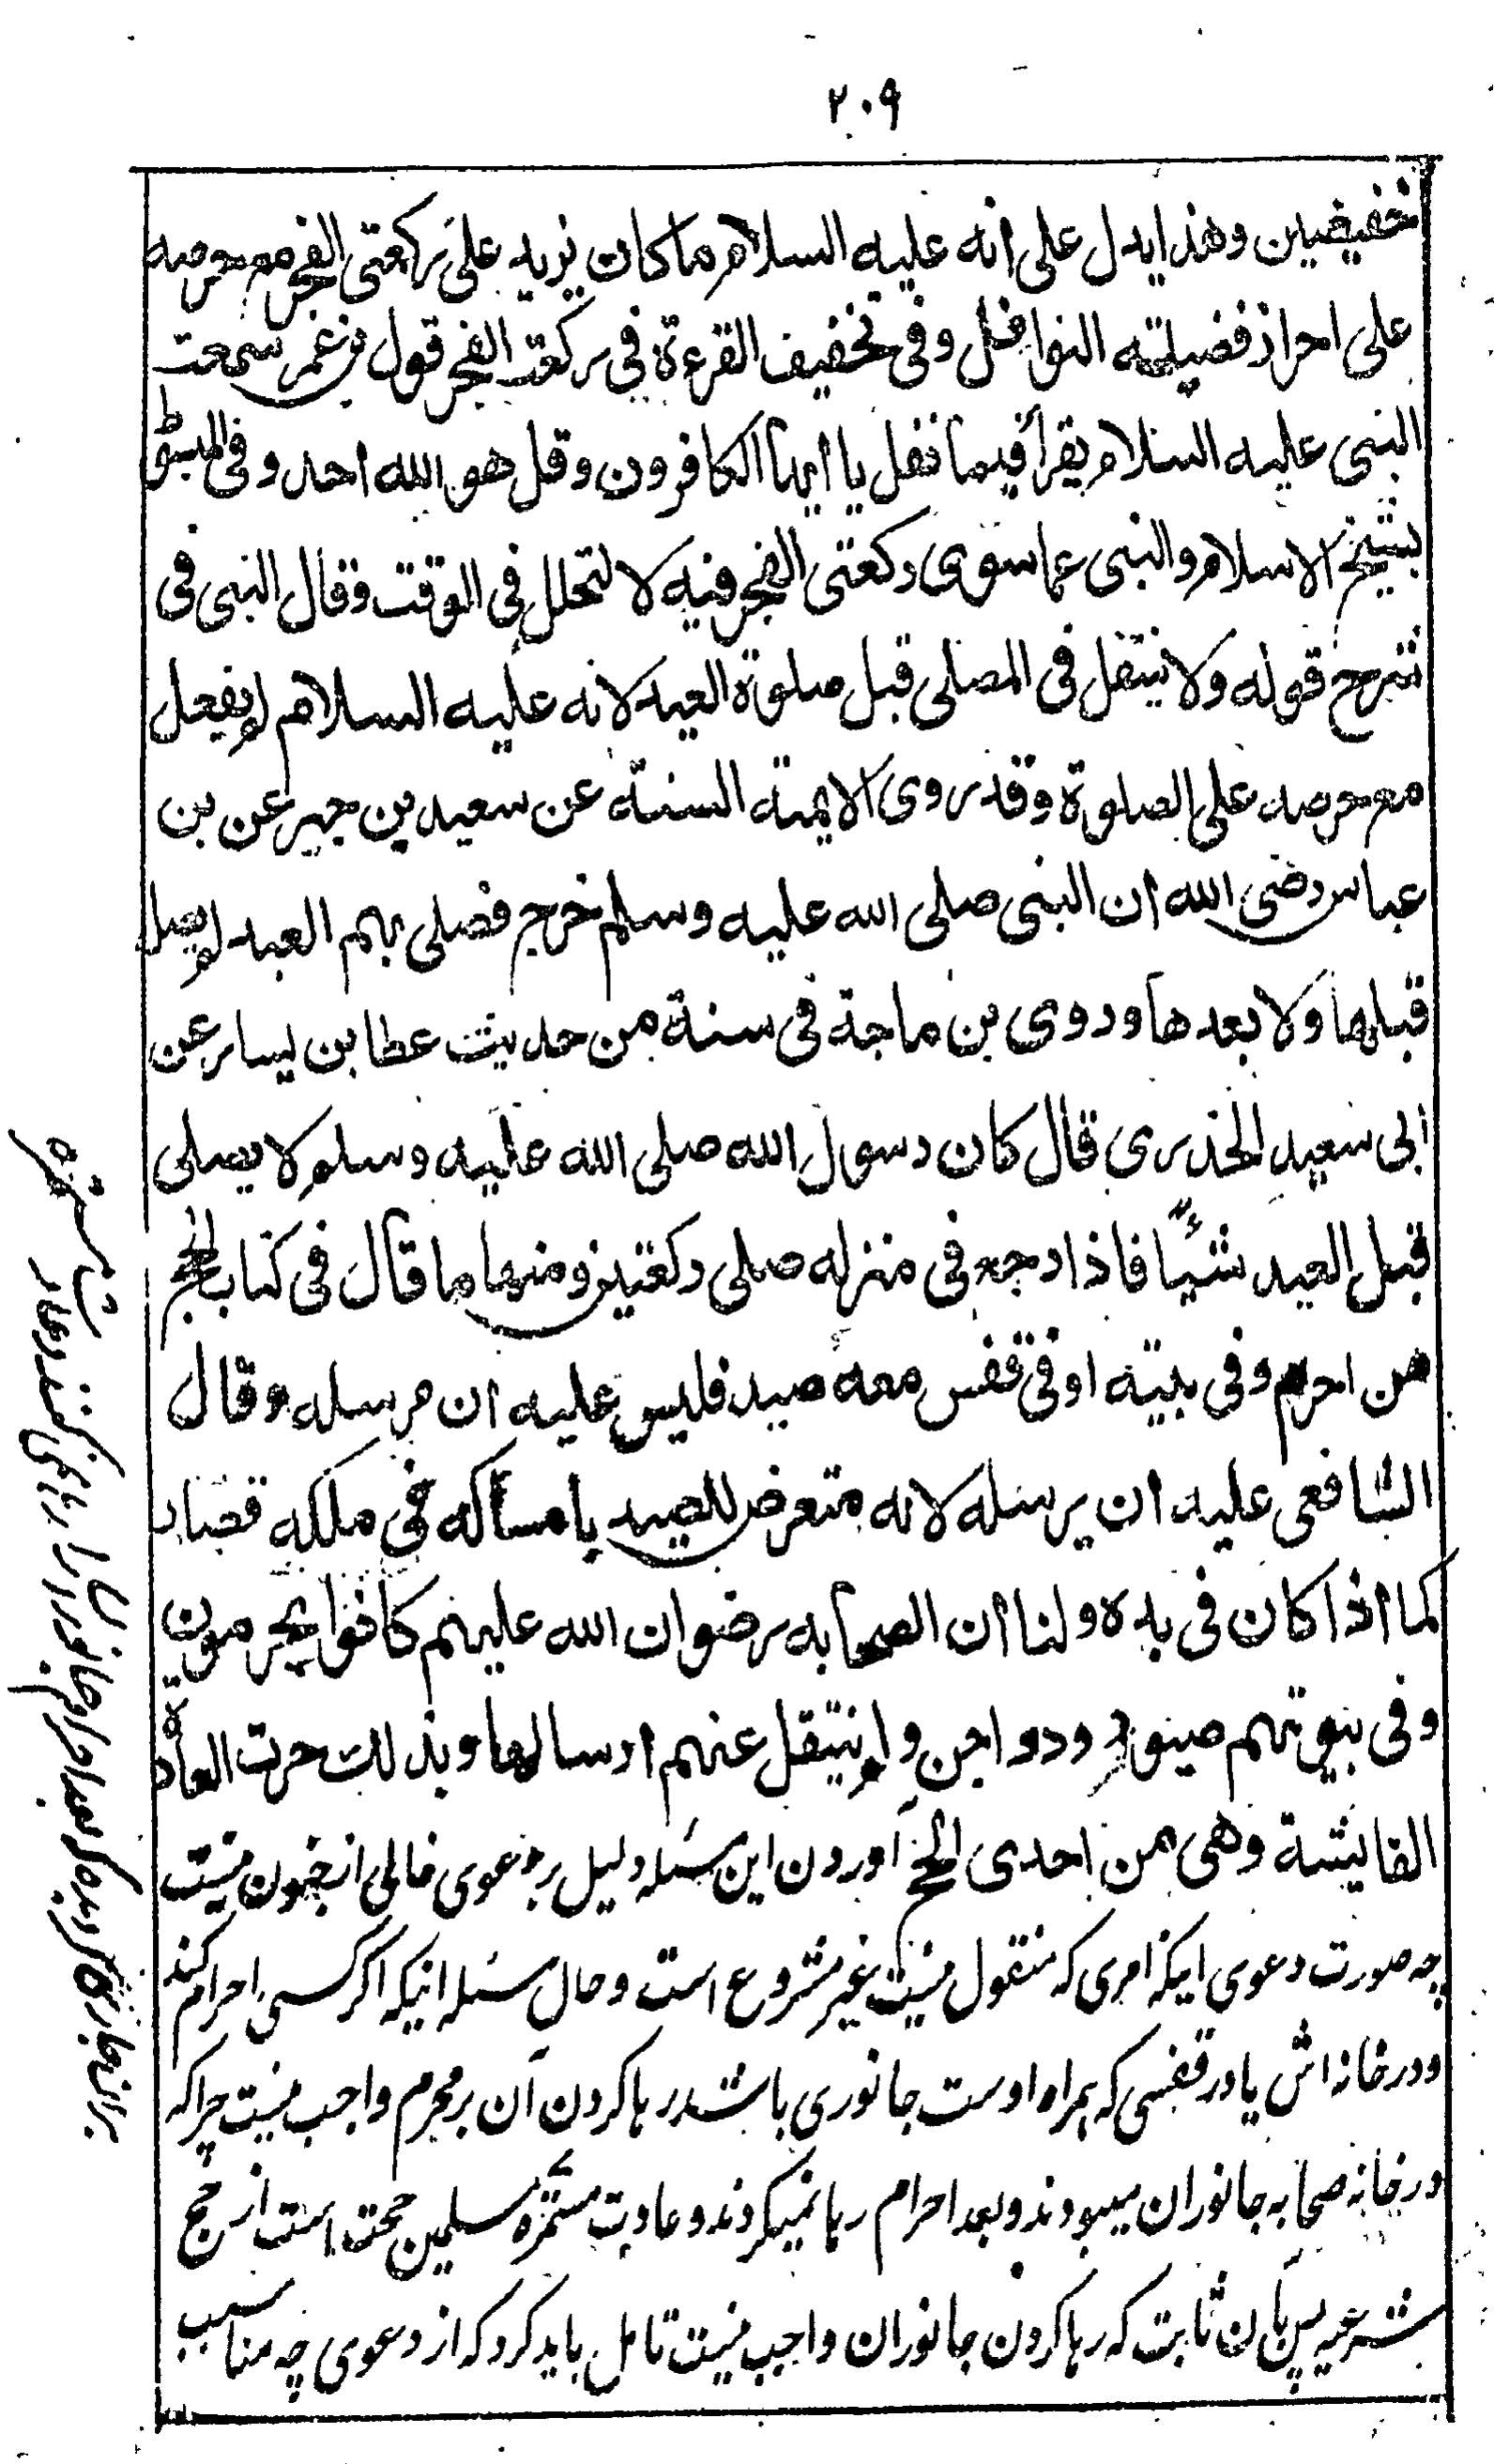 ۲۰۹
خفیفین وهذا یدل علی انه علیه السلام ما کان یزید علی رکعتی الفجر مع حرصه
علی احراز فضیلته النوافل وفی تخفیف القرءة فی رکعتی الفجر قول بن عمر سمعت
النبی علیه السلام یقرأ فیما تنفل یا ایها الکافرون وقل هو الله احد وفی المبسوط
بشیخ الاسلام والنبی عما سوی رکعتی الفجر فیه لا لتحلل فی الوقت وقال النبی فی
شرح قوله ولا یتنفل فی المصلی قبل صلوة العید لانه علیه السلام لم یفعل
مع حرصه علی الصلوة وقد روی الایمة الستة عن سعید بن جبیر عن بن
عباس رضی الله ان النبی صلی الله علیه وسلم خرج فصلی بهم العید لم یصل
قبلها ولا بعدها وروی بن ماجة فی سنة من حدیث عطا بن یسار عن
ابی سعید الخدری قال کان رسول الله صلی الله علیه وسلم لا یصلی
قبل العید شیئًا فاذا رجع فی منزله صلی رکعتین ومنها ما قال فی کتاب الحج
من احرم وفی بیته او فی قفس معه صید فلیس علیه ان یرسله وقال
الشافعی علیه ان یرسله لانه متعرض للصید بامساکه فی ملکه فصار
کما اذا کان فی یده ولنا ان الصحابه رضوان الله علیهم کانوا یحرمون
وفی بیوتهم صیود ودواجن ولم ینتقل عنهم ارسالها وبذلک جرت العادة
الفایشة وهی من احدی الحج آوردن این مسئله دلیل بر دعوی خالی از جنون نیست
چه صورت دعوی اینکه امری که منقول نیست غیر مشروع است وحال مسئله اینکه اگر کسی احرام کند
ودر خانه اش یا در قفسی که همراه اوست جانوری باشد رها کردن آن بر محرم واجب نیست چرا که
در خانه صحابه جانوران میبودند وبعد احرام رها نمیکردند وعادت مستمره مسلمین حجت است از حجج
شرعیه پس بآن ثابت که رها کردن جانوران واجب نیست تامل باید کرد که از دعوی چه مناسب